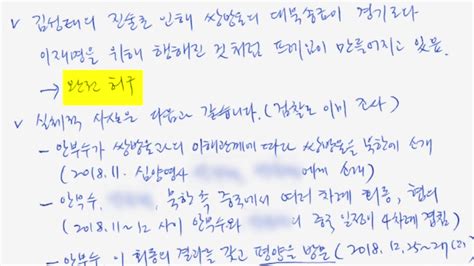 v 김성태의 진술로 인해 쌍방울의 대북송금이 경기도와
이재명을 위해 행해진 것처럼 프레임이 만들어지고 있음.
→ 완전 허구
v 실체적 사실은 다음과 같습니다. (검찰도 이미 조사)
- 안부수가 쌍방울과의 이해관계에 따라 쌍방울을 북한에 소개
(2018.11. 심양영사 에게 소개)
- 안부수, 북한측 중국에서 여러 차례 회동, 협의
(2018.11~12 사이 안부수와 의 중국 일정이 4차례 겹침)
- 안부수, 이 회동의 결과를 갖고 평양을 방문 (2018.12.25~